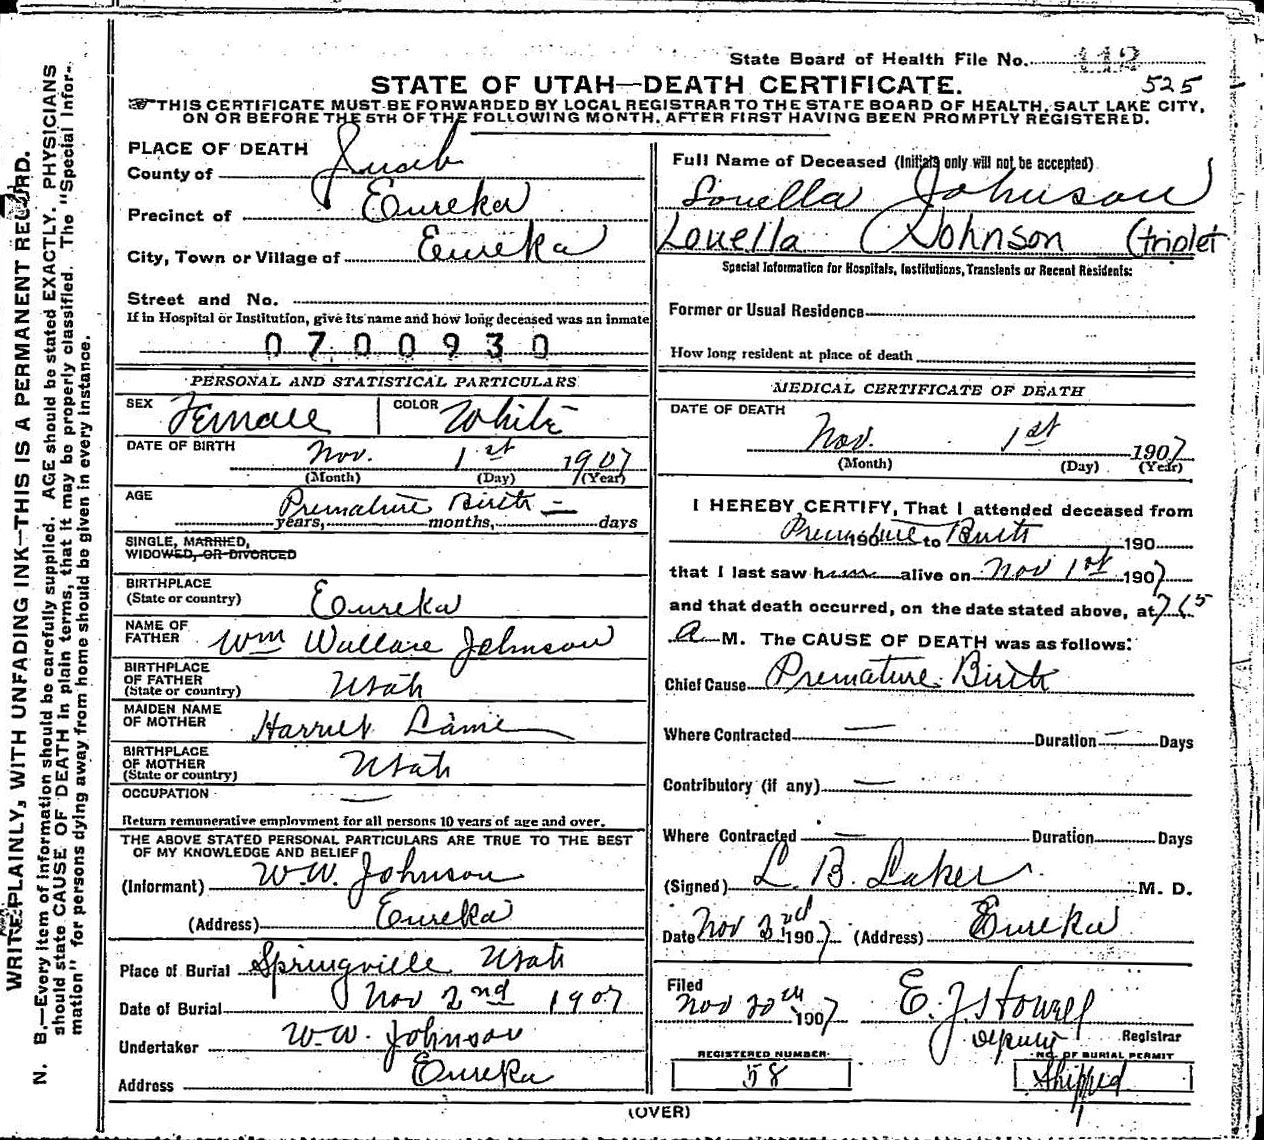 State Board of Health File No. 112
525
STATE OF UTAH—DEATH CERTIFICATE.
THIS CERTIFICATE MUST BE FORWARDED BY LOCAL REGISTRAR TO THE STATE BOARD OF HEALTH, SALT LAKE CITY,
ON OR BEFORE THE 5TH OF THE FOLLOWING MONTH, AFTER FIRST HAVING BEEN PROMPTLY REGISTERED.
PLACE OF DEATH
County of Juab
Precinct of Eureka
City, Town or Village of Eureka
Street and No.
If in Hospital or Institution, give its name and how long deceased was an inmate
0700930
PERSONAL AND STATISTICAL PARTICULARS
SEX Female COLOR White
DATE OF BIRTH Nov. 1st 1907
(Month) (Day) (Year)
AGE Premature Birth —
years, months, days
SINGLE, MARRIED,
WIDOWED, OR DIVORCED
BIRTHPLACE
(State or country) Eureka
NAME OF
FATHER Wm Wallace Johnson
BIRTHPLACE
OF FATHER
(State or country) Utah
MAIDEN NAME
OF MOTHER Harriet
BIRTHPLACE
OF MOTHER
(State or country) Utah
OCCUPATION —
Return remunerative employment for all persons 10 years of age and over.
THE ABOVE STATED PERSONAL PARTICULARS ARE TRUE TO THE BEST
OF MY KNOWLEDGE AND BELIEF
(Informant) W.W. Johnson
(Address) Eureka
Place of Burial Springville Utah
Date of Burial Nov 2nd 1907
Undertaker W.W. Johnson
Address Eureka
Full Name of Deceased (Initials only will not be accepted)
Louella Johnson
Louella Johnson (triplet
Special Information for Hospitals, Institutions, Transients or Recent Residents:
Former or Usual Residence
How long resident at place of death
MEDICAL CERTIFICATE OF DEATH
DATE OF DEATH
Nov. 1st 1907
(Month) (Day) (Year)
I HEREBY CERTIFY, That I attended deceased from
Premature 190 to Birth 190
that I last saw h alive on Nov 1st 1907
and that death occurred, on the date stated above, at
a M. The CAUSE OF DEATH was as follows:
Chief Cause Premature Birth
Where Contracted — Duration — Days
Contributory (if any) —
Where Contracted — Duration Days
(Signed) L. B. Laker M. D.
Date Nov 1907 (Address) Eureka
Filed
Nov 20th 1907 E. J. Howell
deputy Registrar
REGISTERED NUMBER NO. OF BURIAL PERMIT
58 Shipped
(OVER)
WRITE PLAINLY, WITH UNFADING INK—THIS IS A PERMANENT RECORD.
N. B.—Every item of information should be carefully supplied. AGE should be stated EXACTLY. PHYSICIANS
should state CAUSE OF DEATH in plain terms, that it may be properly classified. The "Special Infor-
mation" for persons dying away from home should be given in every instance.